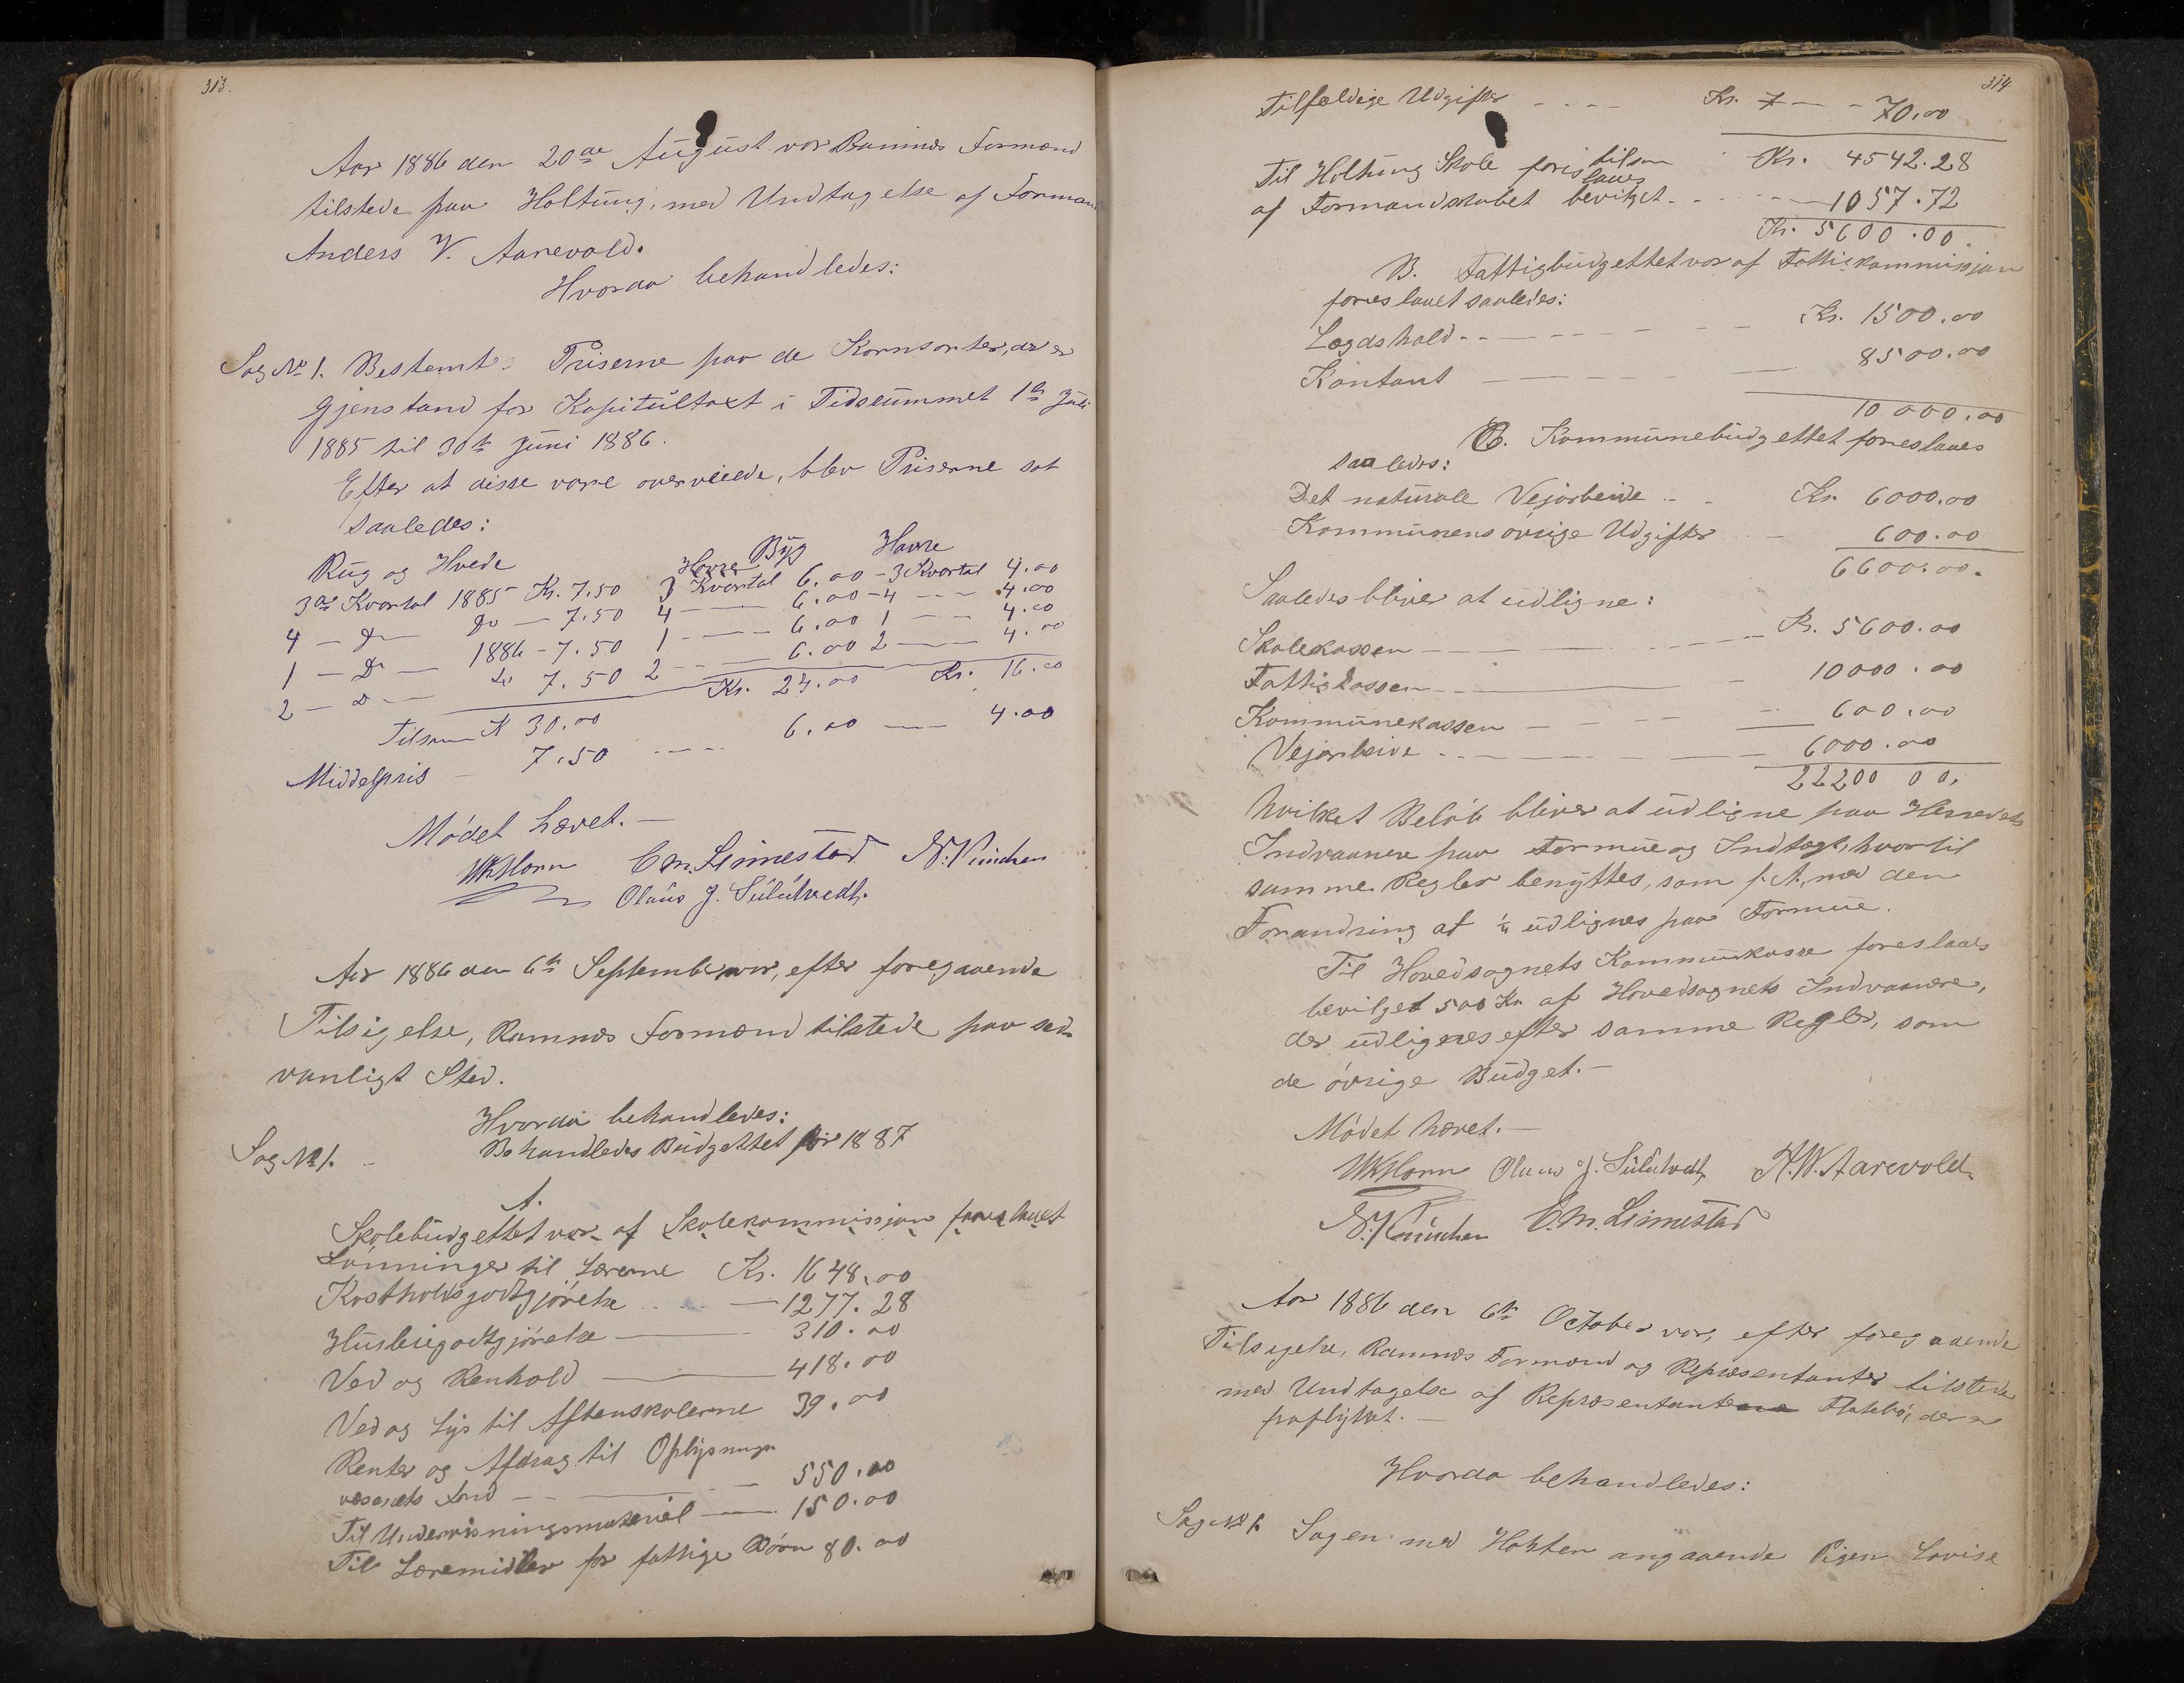 313.
Aar 1886 den 20de August var Ramnæs Formænd
tilstede paa Holtung, med Undtagelse af Formand
Anders W. Aarevold.
Hvorda behandledes:
Sag No 1. Bestemtes Priserne paa de Kornsorter, der er
Gjenstand for Kapitültaxt i Tidsrummet 1ste Juli
1885 til 30te Juni 1886.
Efter at disse vare overveiede, blev Priserne sat
saaledes:
Rüg og Hvede Byg Havre
3die Kvartal 1885 Kr. 7.50 3 Kvartal 6.00 - 3 Kvartal 4.00
4 — Do — Do — 7.50 4 — 6.00 - 4 — 4.00
1 — Do — 1886 - 7.50 1 — 6.00 1 — 4.00
2 — Do — Do 7.50 2 — 6.00 2 — 4.00
Tilsam K 30.00 Kr. 24.00 Kr. 16.00
Middelpris — 7.50 — 6.00 — 4.00
Mödet hævet. —
C.M. Linnestad
Olaüs J. Sülütvedt.
Aar 1886 den 6te September var, efter foregaaende
Tilsigelse, Ramnæs Formænd tilstede paa sæd-
vanligt Sted.
Hvorda behandledes:
Sag No 1. Behandledes Büdgettet for 1887
A.
Skolebüdgettet var af Skolekommissjon foreslaaet
Lönninger til Lærerne Kr. 1648.00
Kostholdsgodtgjörelse — 1277.28
Hüsleiegodtgjörelse — 310.00
Ved og Renhold — 418.00
Ved og Lys til Aftenskolerne 39.00
Renter og Afdrag til Oplysnings
væsenets Fond — 550.00
Til Undervisningsmateriel — 150.00
Til Læremidler for fattige Börn 80.00
314
Tilfældige Udgifter — Kr. 7 — 70.00
tilsam Kr. 4542.28
Til Holtüng Skole foreslaaes
af Formandskabet bevilget — 1057.72
Kr. 5600.00.
B. Fattigbüdgettet var af Fattigkommissjon
foreslaaet saaledes:
Lægdshold — Kr. 1500.00
Kontant — 8500.00
10000.00
C. Kommünebüdgettet foreslaaes
saaledes:
Det naturale Vejarbeide — Kr. 6000.00
Kommünens övrige Udgifter — 600.00
6600.00.
Saaledes bliver at üdligne:
Skolekassen — Kr. 5600.00
Fattigkassen — 10000.00
Kommünekassen — 600.00
Vejarbeide — 6000.00
22200 00.
hvilket Belöb bliver at üdligne paa Herredets
Indvaanere paa Formüe og Indtægt, hvortil
samme Regler benyttes, som f. A., med den
Forandring at üdlignes paa Formüe.
Til Hovedsognets Kommünekasse foreslaaes
bevilget 500 Kr. af Hovedsognets Indvaanere,
der üdlignes efter samme Regler, som
de övrige Büdget. —
Mödet hævet. —
Olaus J. Sülütvedt, A.W. Aarevold.
C.M. Linnestad
Aar 1886 den 6te October var, efter foregaaende
Tilsigelse, Ramnæs Formænd og Repræsentanter tilstede
med Undtagelse af Repræsentant Flatebö, der er
fraflyttet. —
Hvorda behandledes:
Sag No 1. Sagen med angaaende Pigen Lovise